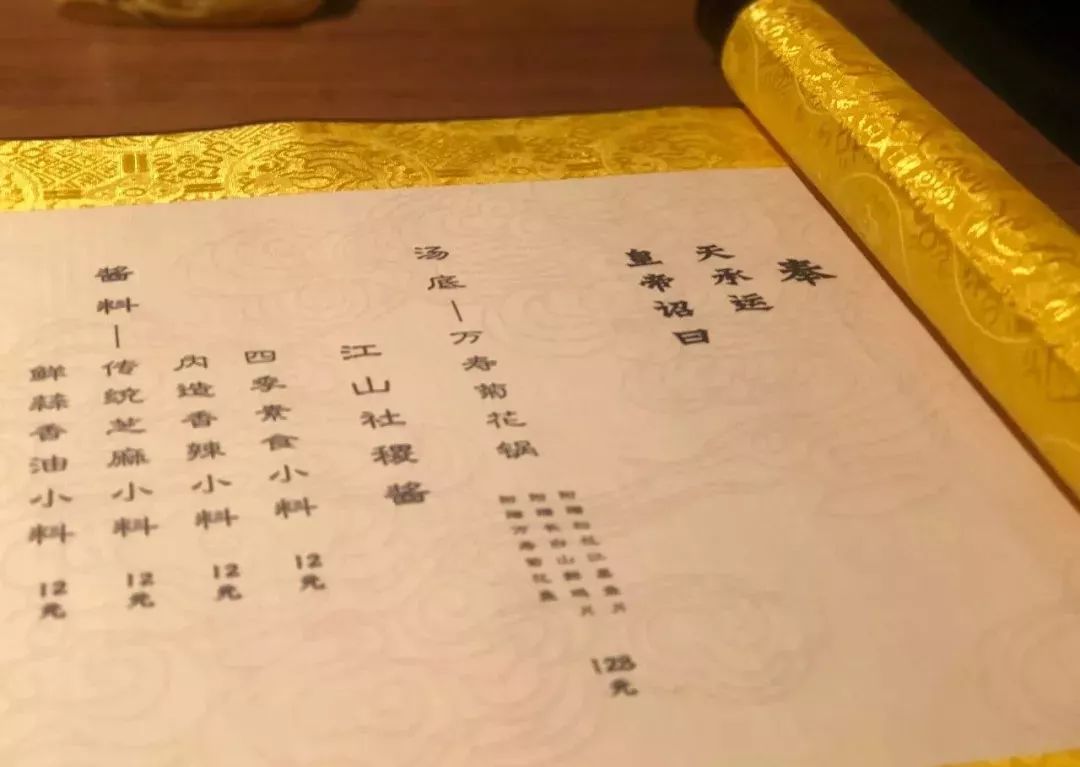 奉
天承运
皇帝诏曰
附赠
附赠长白山
附赠万寿菊花
128元
汤底—万寿菊花锅
江山社稷酱
四季素食小料 12元
内造香辣小料 12元
酱料—传统芝麻小料 12元
鲜蒜香油小料 12元